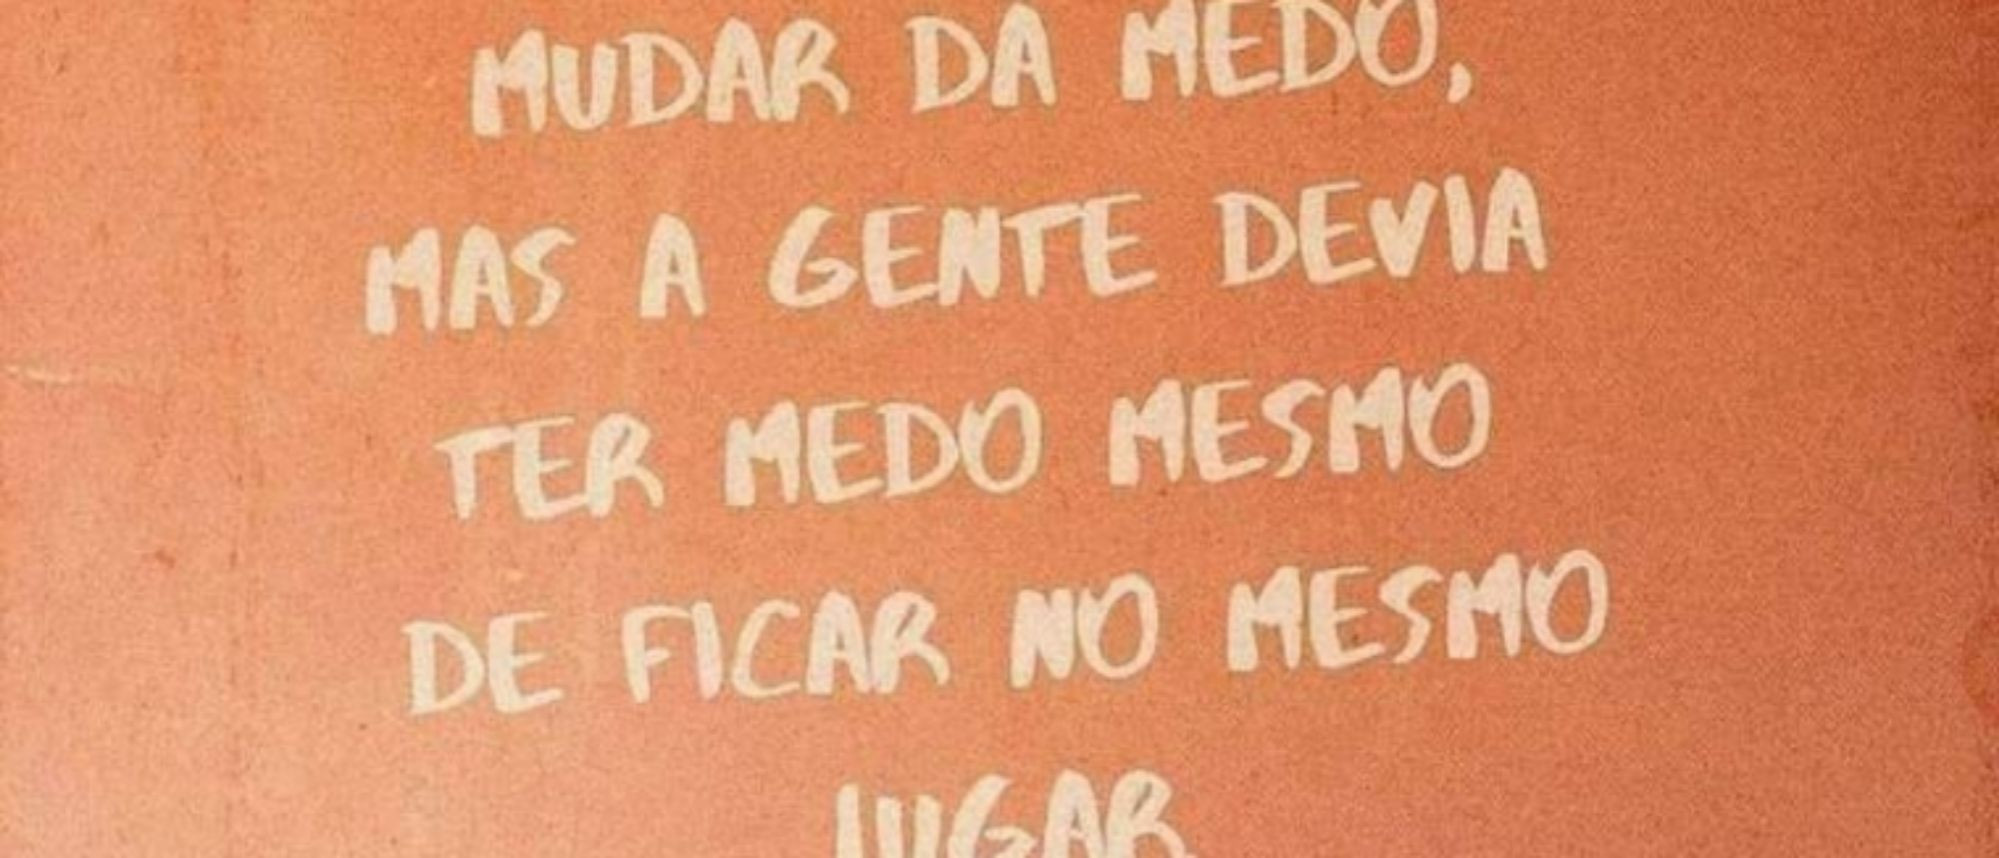 MUDAR DA MEDO,
MAS A GENTE DEVIA
TER MEDO MESMO
DE FICAR NO MESMO
LUGAR